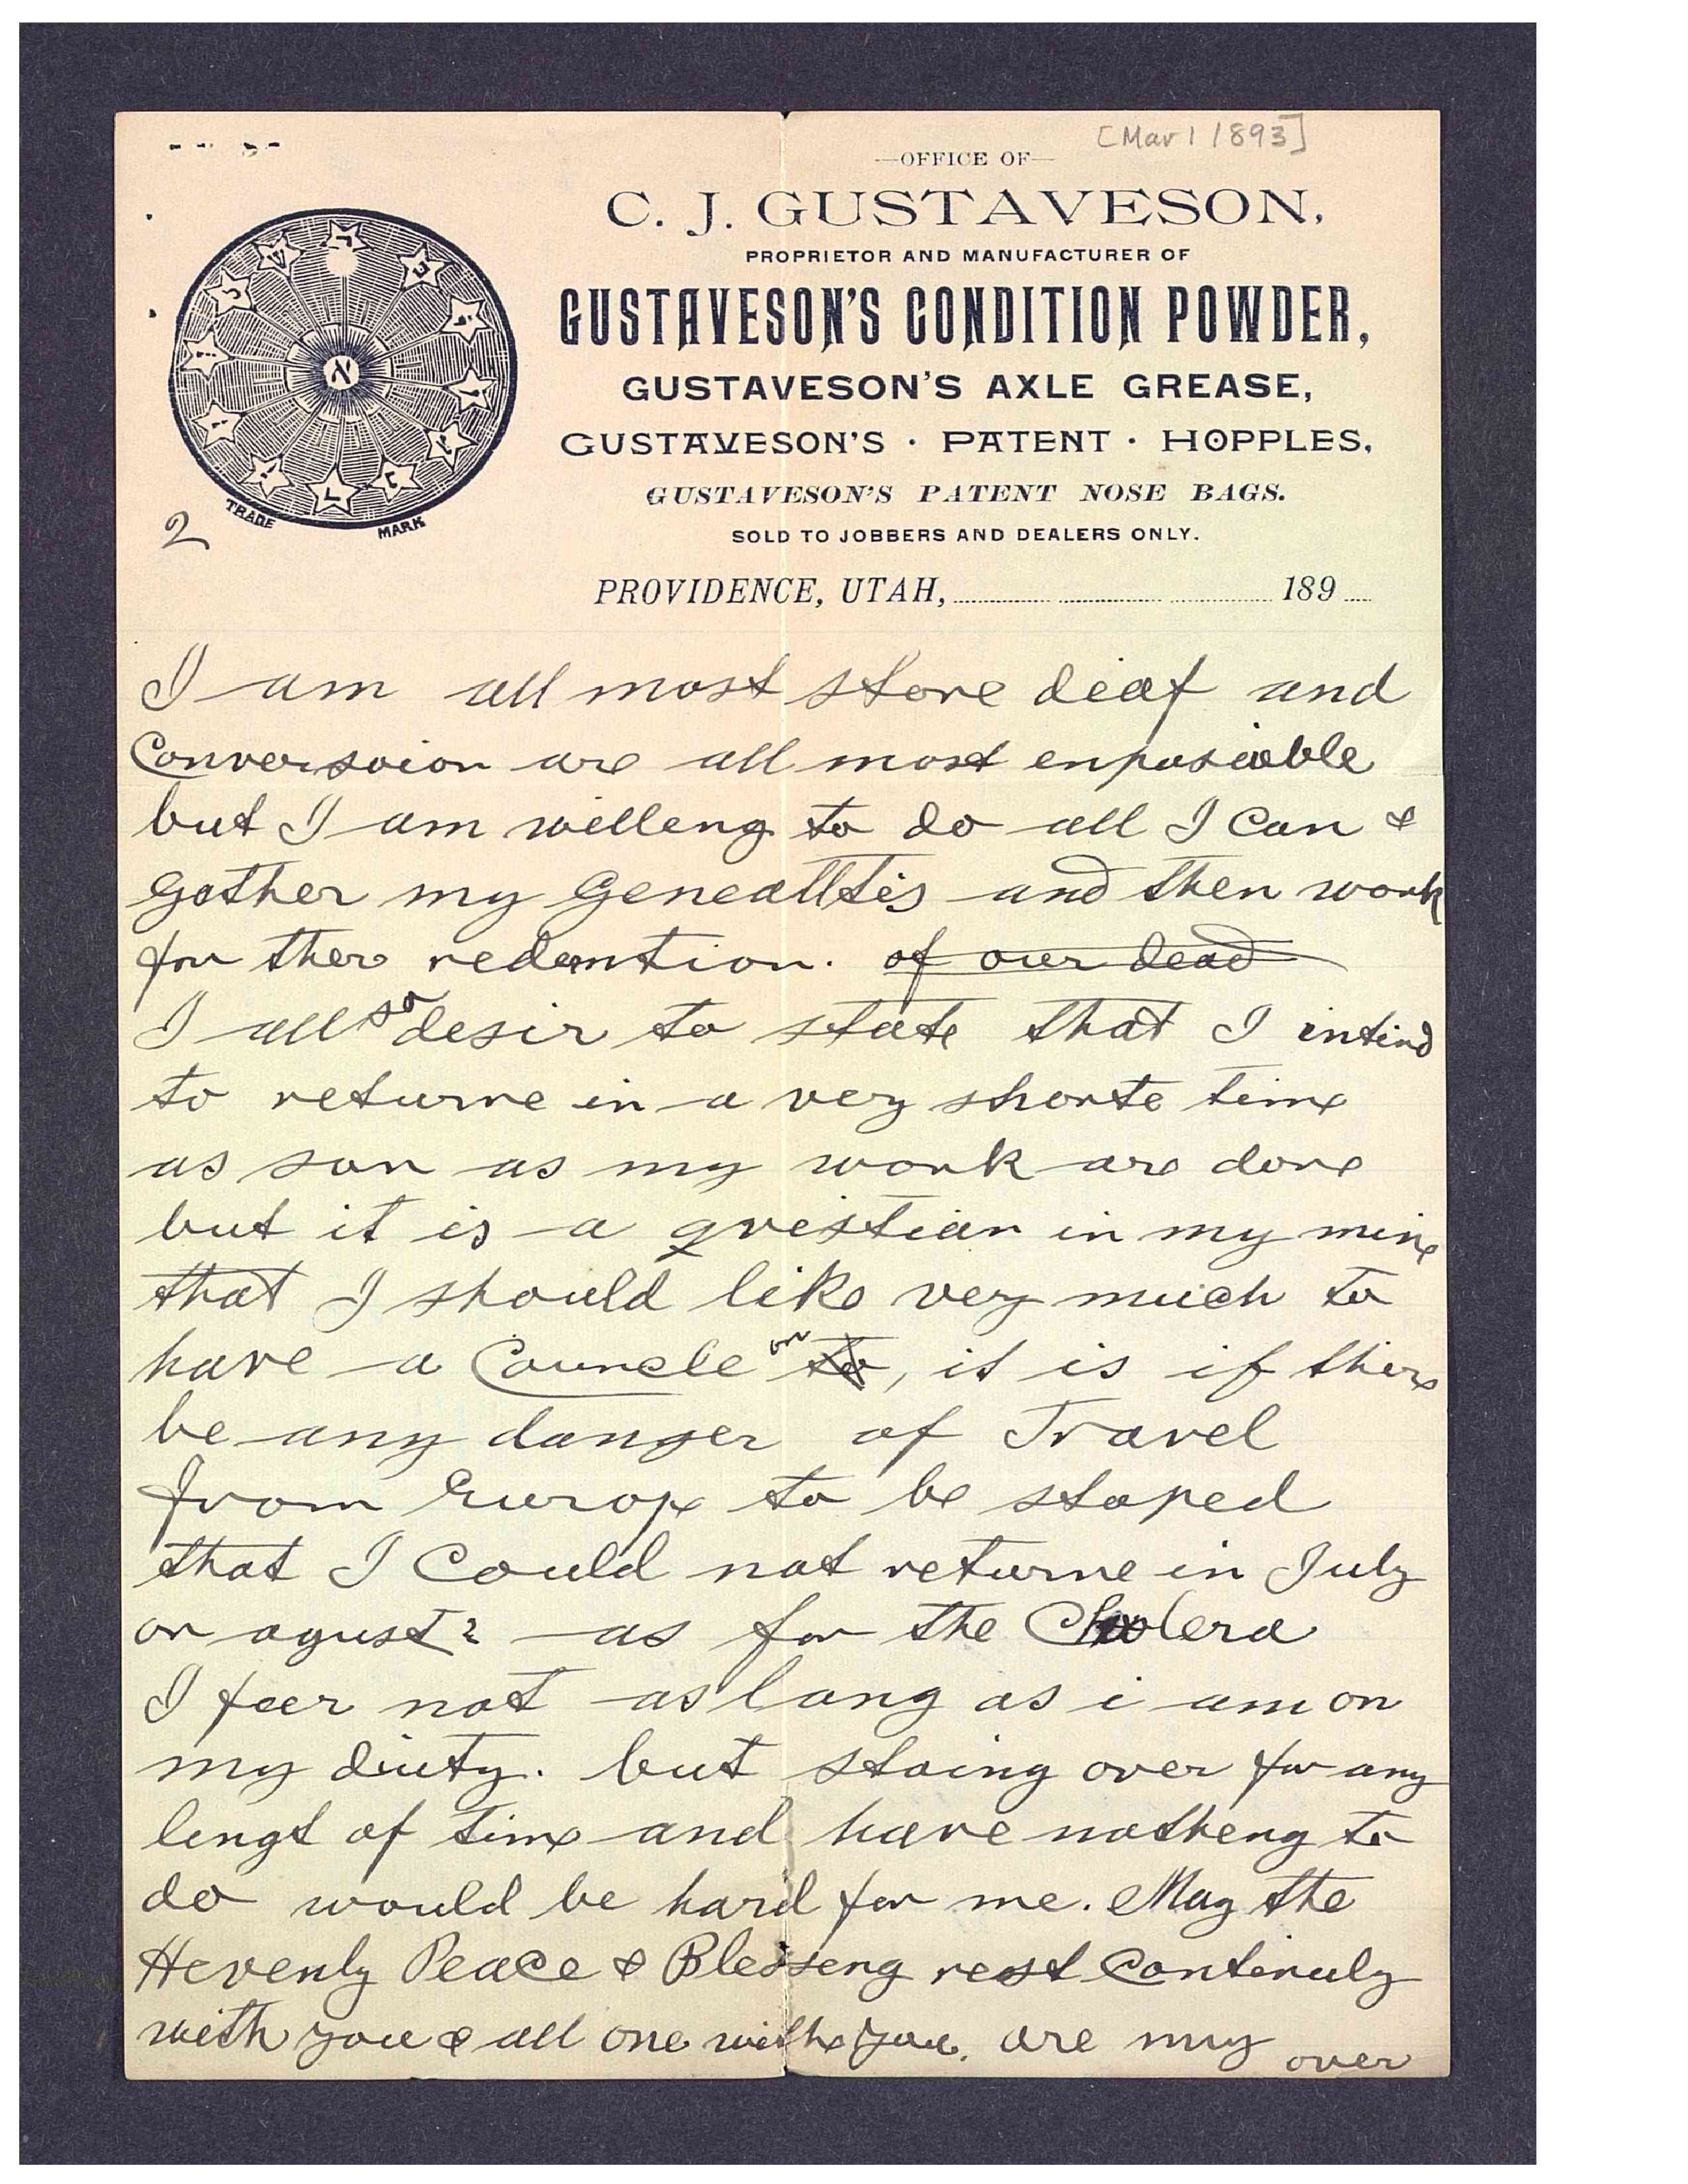 [Mar 1 1893]
—OFFICE OF—
C. J. GUSTAVESON,
PROPRIETOR AND MANUFACTURER OF
GUSTAVESON'S CONDITION POWDER,
GUSTAVESON'S AXLE GREASE,
GUSTAVESON'S · PATENT · HOPPLES,
GUSTAVESON'S PATENT NOSE BAGS.
SOLD TO JOBBERS AND DEALERS ONLY.
TRADE MARK
2
PROVIDENCE, UTAH, 189
I am all most stone deaf and
Conversoion are all most enposiable
but I am welleng to do all I Can &
gather my Geneallties and then work
for ther redemtion. of our dead
I all so desir to state that I intind
to returne in a very shorte time
as son as my work are done
but it is a qvestian in my mine
that I should like very much to
have a Councle on to, it is if there
be any danger of Travel
from Europe to be staped
that I Could not returne in July
or agust? as for the Cholera
I feer not as lang as i am on
my diuty. but staing over for any
lengt of time and have notheng to
do would be hard for me. May the
Hevenly Peace & Blesseng rest Contenuly
with you & all one withe you. are my
over